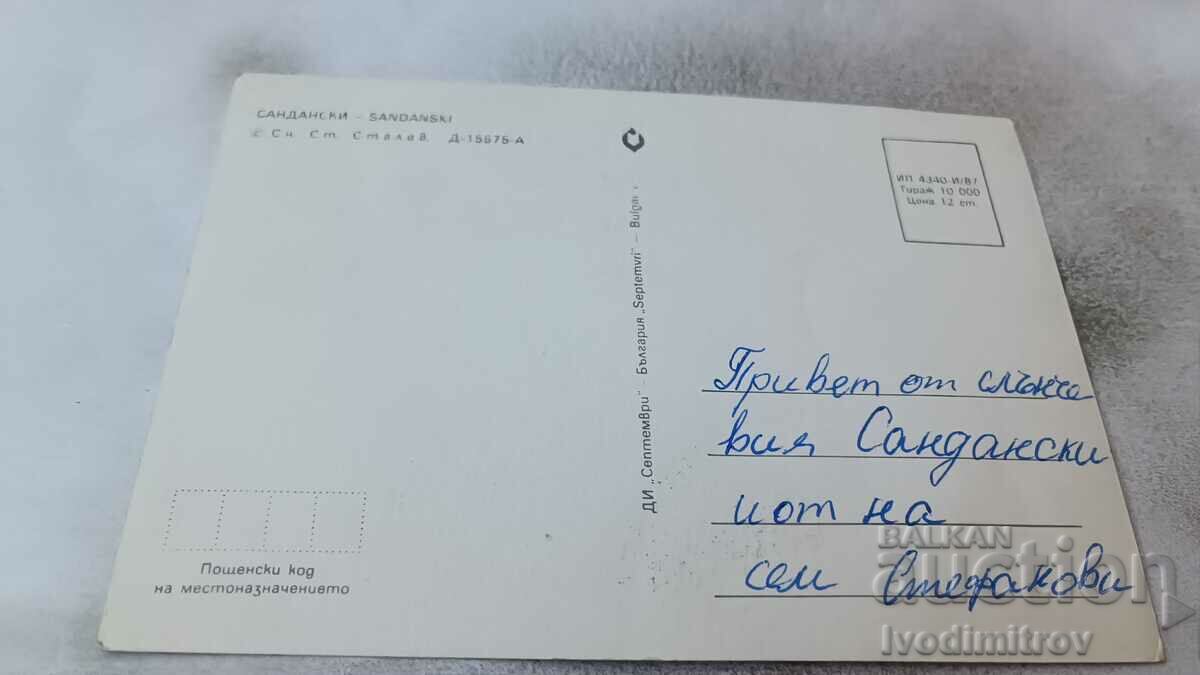 САНДАНСКИ – SANDANSKI
© Сн. Ст. Сталев, Д-15575-А
ДИ „Септември" – България „Septemvri" – Bulgar
ИП 4340-И/87
Тираж 10 000
Цена 12 ст.
Привет от слънче
вия Сандански
и от на
сем Стефанови
Пощенски код
на местоназначението
BALKAN
auction
Ivodimitrov